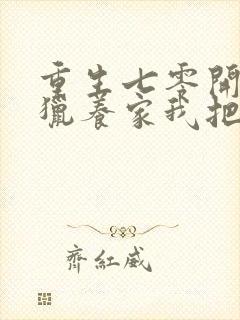 重生七零開
獵養家我把
齊紅威